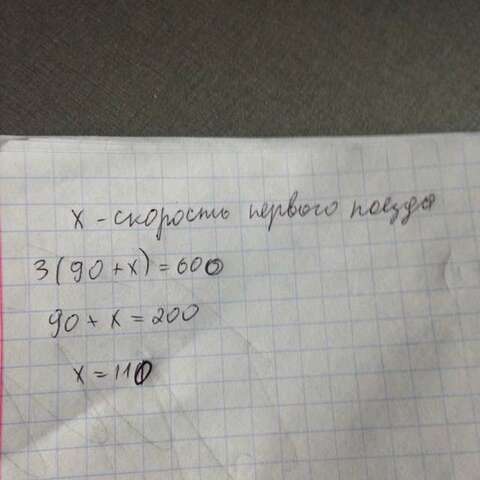 x - скорость первого поезда
3(90+x)=600
90+x=200
x=110